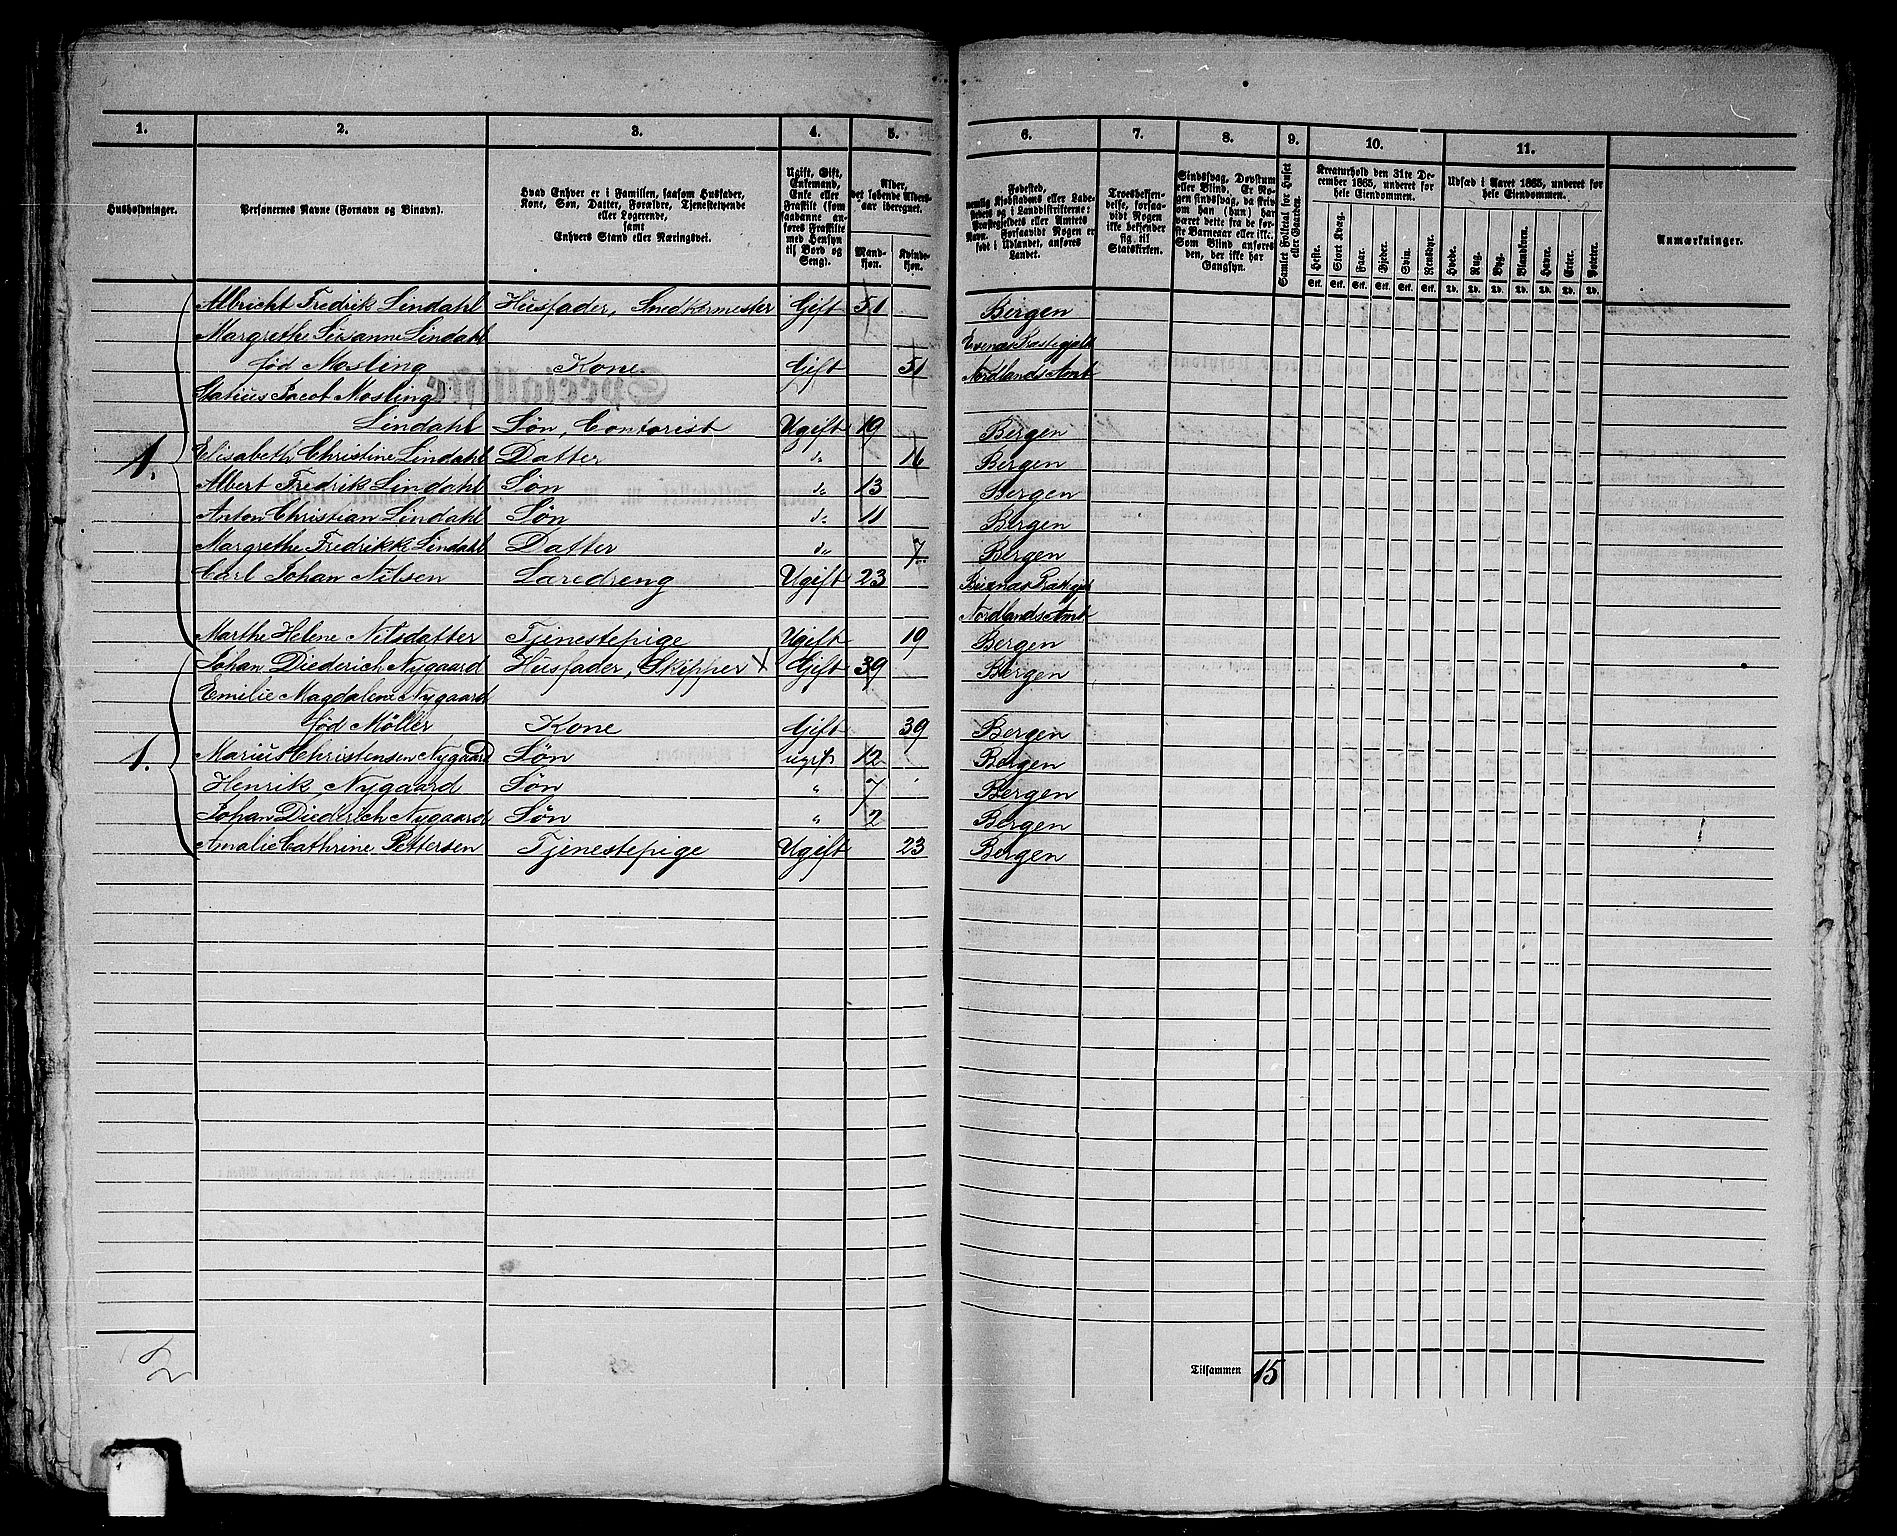 1. 2. 3. 4. 5. 6. 7. 8. 9. 10. 11.
Husholdninger.
Personernes Navne (Fornavn og Binavn).
Hvad Enhver er i Familien, saasom Husfader,
Kone, Søn, Datter, Forældre, Tjenestetyende
eller Logerende,
samt
Enhvers Stand eller Næringsvei.
Ugift, Gift,
Enkemand,
Enke eller
Fraskilt (som
saadanne an-
føres Fraskilte
med Hensyn
til Bord og
Seng).
Alder,
det løbende Alders-
aar iberegnet.
Mand-
kjøn.
Kvinde-
kjøn.
Fødested,
nemlig Kjøbstadens eller Lade-
stedets og i Landdistrikterne:
Præstegjeldets eller Amtets
Navn. Forsaavidt Nogen er
født i Udlandet, anføres
Landet.
Troesbekjen-
delse, forsaa-
vidt Nogen
ikke bekjender
sig til
Statskirken.
Sindssvag, Døvstum
eller Blind. Er No-
gen sindssvag, da skriv
om han (hun) har
været dette fra de før-
ste Barneaar eller ikke.
Som Blind anføres
den, der ikke har
Gangsyn.
Samlet Folketal for Huset
eller Gaarden.
Kreaturhold den 31te De-
cember 1865, underet for
hele Eiendommen.
Heste. Stort Kvæg. Faar. Gjeder. Svin. Rensdyr.
Stk. Stk. Stk. Stk. Stk. Stk.
Udsæd i Aaret 1865, underet for
hele Eiendommen.
Hvede. Rug. Byg. Blandkorn. Havre. Erter. Poteter.
Td. Td. Td. Td. Td. Td. Td.
Anmærkninger.
Albricht Fredrik Lindahl Husfader, Snedkermester Gift 51 Bergen
Margrethe Susanne Lindahl Evenæs Præstegjæld
fød Mosling Kone Gift 51 Nordlands Amt
Statius Jacob Mosling
Lindahl Søn, Contorist Ugift 19 Bergen
1. Elisabeth Christine Lindahl Datter do 16 Bergen
Albert Fredrik Lindahl Søn do 13 Bergen
Anton Christian Lindahl Søn do 11 Bergen
Margrethe Fredrikke Lindahl Datter do 7 Bergen
Carl Johan Nilsen Læredreng Ugift 23
Nordlands Amt
Marthe Helene Nilsdatter Tjenestepige Ugift 19 Bergen
Johan Diederich Nygaard Husfader, Skipper X Gift 39 Bergen
Emilie Magdalene Nygaard
fød Møller Kone Gift 39 Bergen
1. Marius Christensen Nygaard Søn ugift 12 Bergen
Henrik Nygaard Søn " 7 Bergen
Johan Diederich Nygaard Søn " 2 Bergen
Amalie Cathrine Pettersen Tjenestepige Ugift 23 Bergen
2
Tilsammen 15